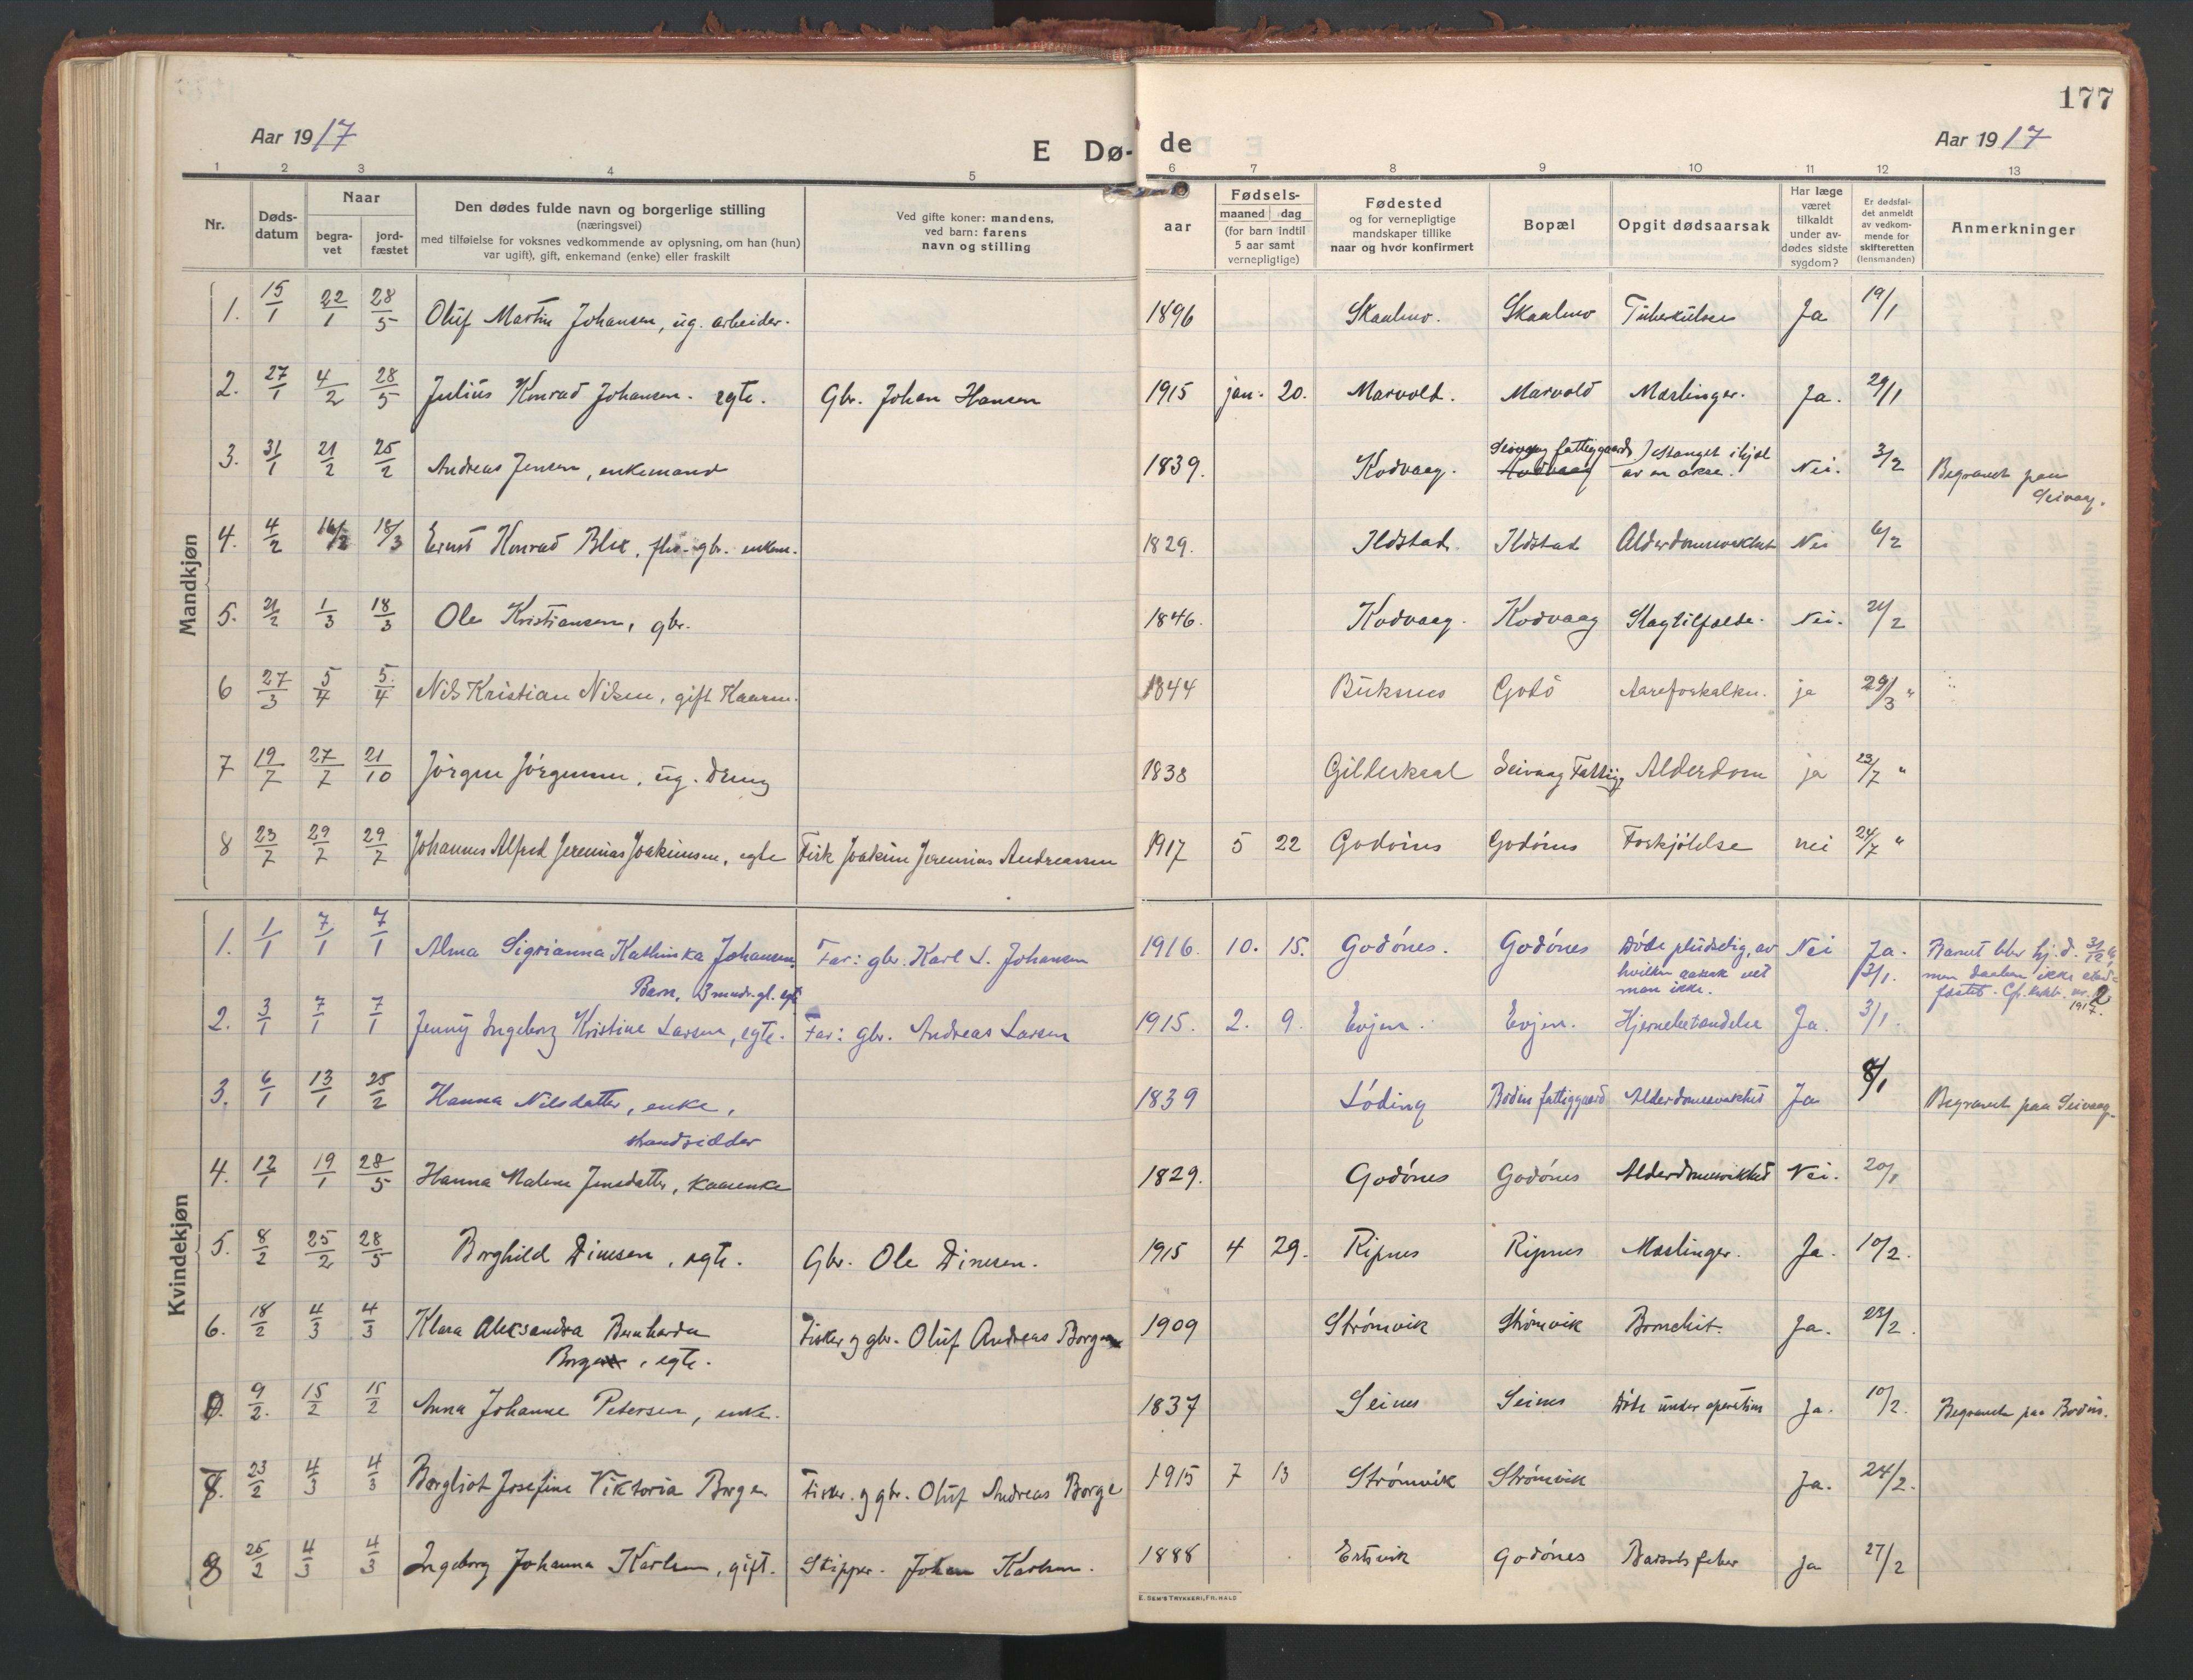 177
Aar 1917
E Dø-
de
Aar 1917
1 2 3 4 5 6 7 8 9 10 11 12 13
Nr.
Døds-
datum
Naar
begra-
vet
jord-
fæstet
Den dødes fulde navn og borgerlige stilling
(næringsvei)
med tilføielse for voksnes vedkommende av oplysning, om han (hun)
var ugift), gift, enkemand (enke) eller fraskilt
Ved gifte koner: mandens,
ved barn: farens
navn og stilling
aar
Fødsels-
maaned dag
(for barn indtil
5 aar samt
vernepligtige)
Fødested
og for vernepligtige
mandskaper tillike
naar og hvor konfirmert
Bopæl
Opgit dødsaarsak
Har læge
været
tilkaldt
under av-
dødes sidste
sygdom?
Er dødsfal-
det anmeldt
av vedkom-
mende for
skifteretten
(lensmanden)
Anmerkninger
Mandkjøn
1. 15/1 22/1 28/5 Oluf Martin Johansen, ug. arbeider. 1896 Skaalmo. Skaalmo Tuberkulose Ja 19/1
2. 27/1 4/2 28/5 Julius Konrad Johansen. egte. Gbr. Johan Hansen 1915 jan. 20. Marvold. Marvold Mæslinger. Ja. 29/1
3. 31/1 21/2 25/2 Andreas Jensen, enkemand 1839. Kodvaag. Seivaag fattiggaard Kodvaag Stanget ihjel
av en okse. Nei. 3/2 Begravet paa
Seivaag.
4. 4/2 16/2 18/3 Ernst Konrad Blix, gbr. enkem. 1829. Ildstad. Ildstad Alderdomssvakhet Nei 6/2
5. 21/2 1/3 18/3 Ole Kristiansen, gbr. 1846. Kodvaag. Kodvaag Slagtilfælde. Nei. 24/2
6 27/3 5/4 5/4 Nils Kristian Nilsen, gift Kaarm. 1844 Buksnes Godö Aareforkalkn. ja 29/3 "
7 19/7 27/7 21/10 Jörgen Jörgensen, ug. Dreng 1838 Gildeskaal Seivaag Fattigg Alderdom ja 23/7 "
8 23/7 29/7 29/7 Johannes Alfred Jeremias Joakimsen, egte Fisk Joakim Jeremias Andreassen 1917 5 22 Godönes Godönes Forkjölelse nei 24/7 "
Kvindekjøn
1. 1/1 7/1 7/1 Alma Sigrianna Kathinka Johansen,
Barn, 3 mndr. gl. egte Far: gbr. Karl L. Johansen 1916. 10. 15. Godónes. Godónes Döde pludselig, av
hvilken aarsak vet
man ikke. Nei Ja.
3/1. Barnet blev hj.d. 31/12 16,
men daaben ikke stad-
fæstet. Cfr. nr. 2
1917.
2. 3/1 7/1 7/1 Jenny Ingeborg Kristine Larsen, egte. Far: gbr. Andreas Larsen 1915. 2. 9. Evjen. Evjen. Hjernebetændelse Ja. 3/1.
3. 6/1 13/1 25/2 Hanna Nilsdatter, enke,
strandsidder 1839 Löding Bodin fattiggaard Alderdomssvakhet Ja 8/1 Begravet paa Seivaag.
4. 12/1 19/1 28/5 Hanna Malene Jensdatter, kaarenke 1829. Godónes Godónes Alderdomssvakhet Nei. 20/1
5. 8/2 25/2 28/5 Borghild Dinesen, egte. Gbr. Ole Dinesen. 1915 4 29. Ripnes Ripnes Mæslinger. Ja. 10/2.
6. 18/2 4/3 4/3 Klara Aleksandra Bernharda
Borge, egte. Fisker og gbr. Oluf Andreas Borge 1909 Strómvik Strómvik Bronchit. Ja. 22/2.
9/2. 15/2 15/2 Anna Johanne Petersen, enke. 1837 Seines Seines Döde under operation Ja. 10/2. Begravet paa Bodin.
7. 23/2 4/3 4/3 Bergliot Josefine Viktoria Borge. Fisker og gbr. Oluf Andreas Borge 1915 7 13 Strómvik Strómvik Ja. 24/2.
8 25/2 4/3 4/3 Ingeborg Johanna Karlsen, gift. Skipper. Johan Karlsen. 1888 Godónes Barselsfeber Ja 27/2
E. SEM'S TRYKKERI, FR. HALD